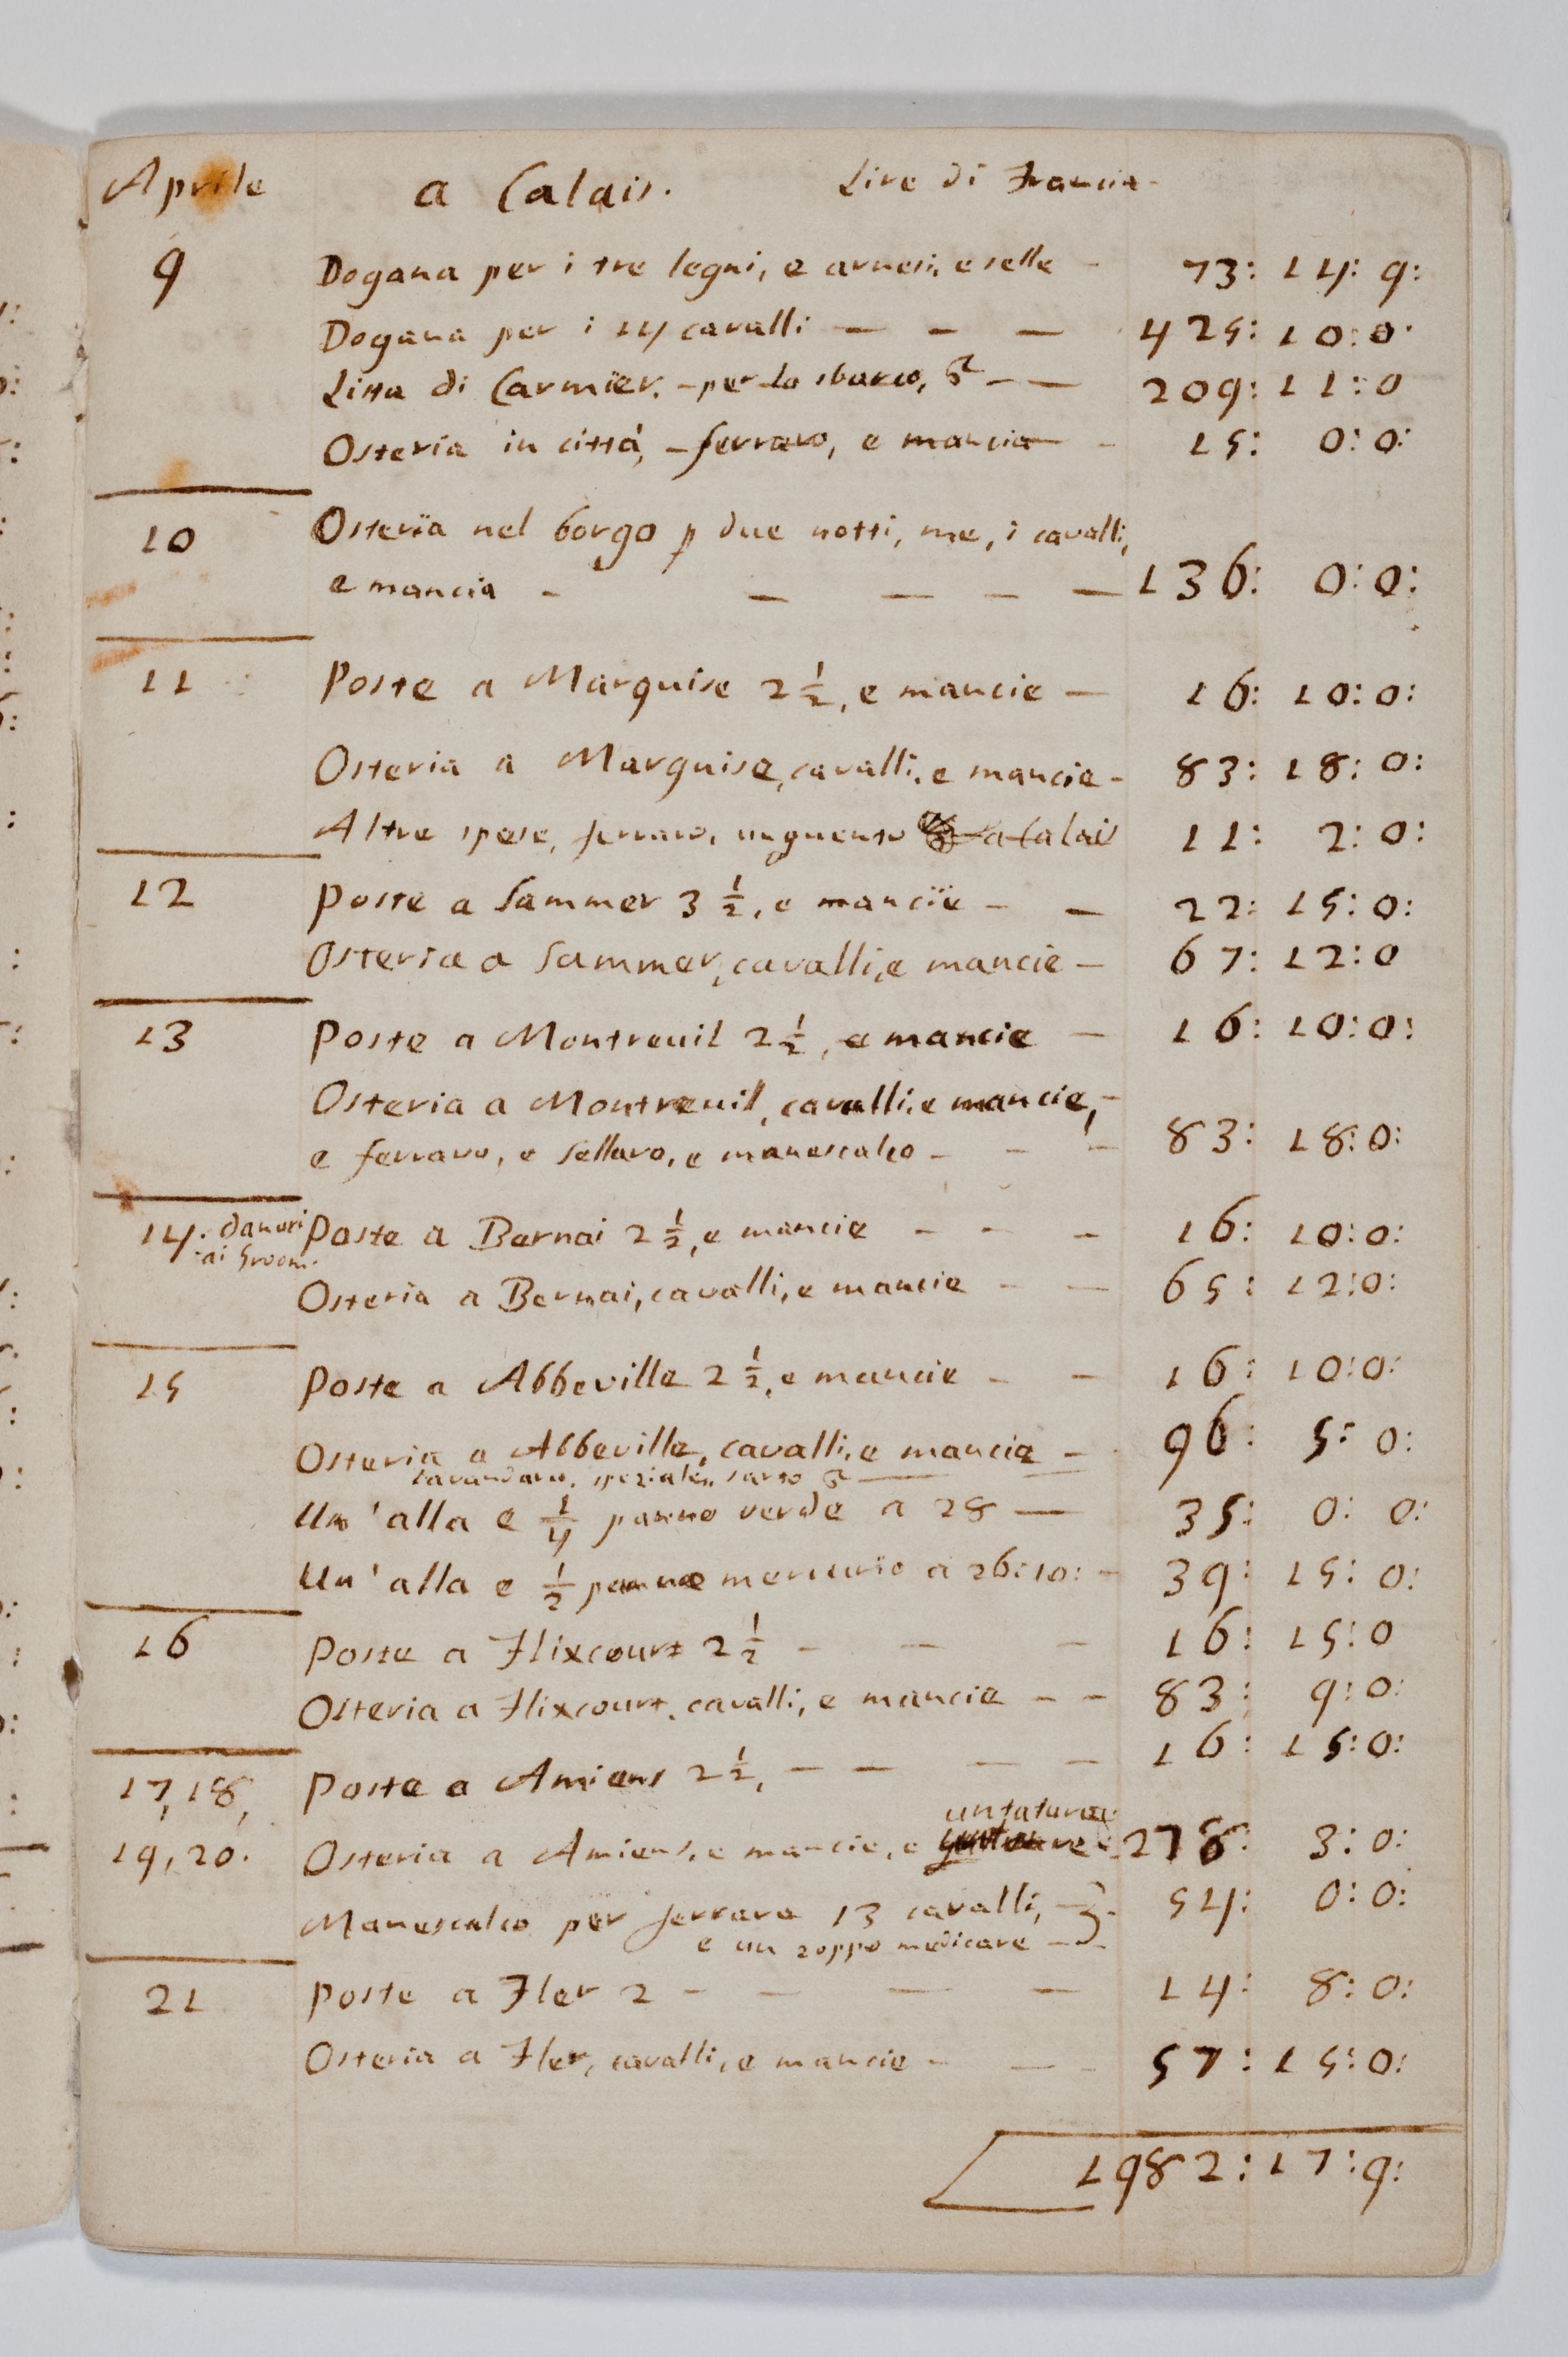 Aprile a Calais. Lire di Francia
9 Dogana per i tre legni, e arnesi, e selle - 73: 14: 9:
Dogana per i 14 cavalli — - — 425: 10: 0:
Lista di Carmier. - per lo sbarco, & - — 209: 11: 0
Osteria in città, - ferraro, e mancia - 15: 0: 0:
10 Osteria nel borgo p due notti, me, i cavalli,
e mancia - — — - — 136: 0: 0:
11 Poste a Marquise 2 1/2, e mancie — 16: 10: 0:
Osteria a Marquise, cavalli, e mancie - 83: 18: 0:
Altre spese, ferraro, unguento a Calais 11: 2: 0:
12 Poste a Sammer 3 1/2, e mancie - — 22: 15: 0:
Osteria a Sammer, cavalli, e mancie — 67: 12: 0
13 Poste a Montreuil 2 1/2, e mancie — 16: 10: 0:
Osteria a Montreuil, cavalli, e mancie, -
e ferraro, e sellaro, e manescalco - - - 83: 18: 0:
14. danari Poste a Bernai 2 1/2, e mancie - - - 16: 10: 0:
ai Groom.
Osteria a Bernai, cavalli, e mancie - — 65: 12: 0:
15 Poste a Abbeville 2 1/2, e mancie - - 16: 10: 0:
Osteria a Abbeville, cavalli, e mancie - 96: 5: 0:
lavandaro, speziale, sarto & —
Un' alla e 1/4 panno verde a 28 — 35: 0: 0:
Un' alla e 1/2 panno mercurio a 26: 10: - 39: 15: 0:
16 Poste a Flixcourt 2 1/2 - — - 16: 15: 0
Osteria a Flixcourt, cavalli, e mancie - - 83: 9: 0:
17, 18, Poste a Amiens 2 1/2, - — — - 16: 15: 0:
untature
19, 20. Osteria a Amiens, e mancie, e 278: 3: 0:
Manescalco per ferrare 13 cavalli, — 54: 0: 0:
e un zoppo medicare —
21 Poste a Fler 2 - - — — 14: 8: 0:
Osteria a Fler, cavalli, e mancie - — - 57: 15: 0:
1982: 17: 9: